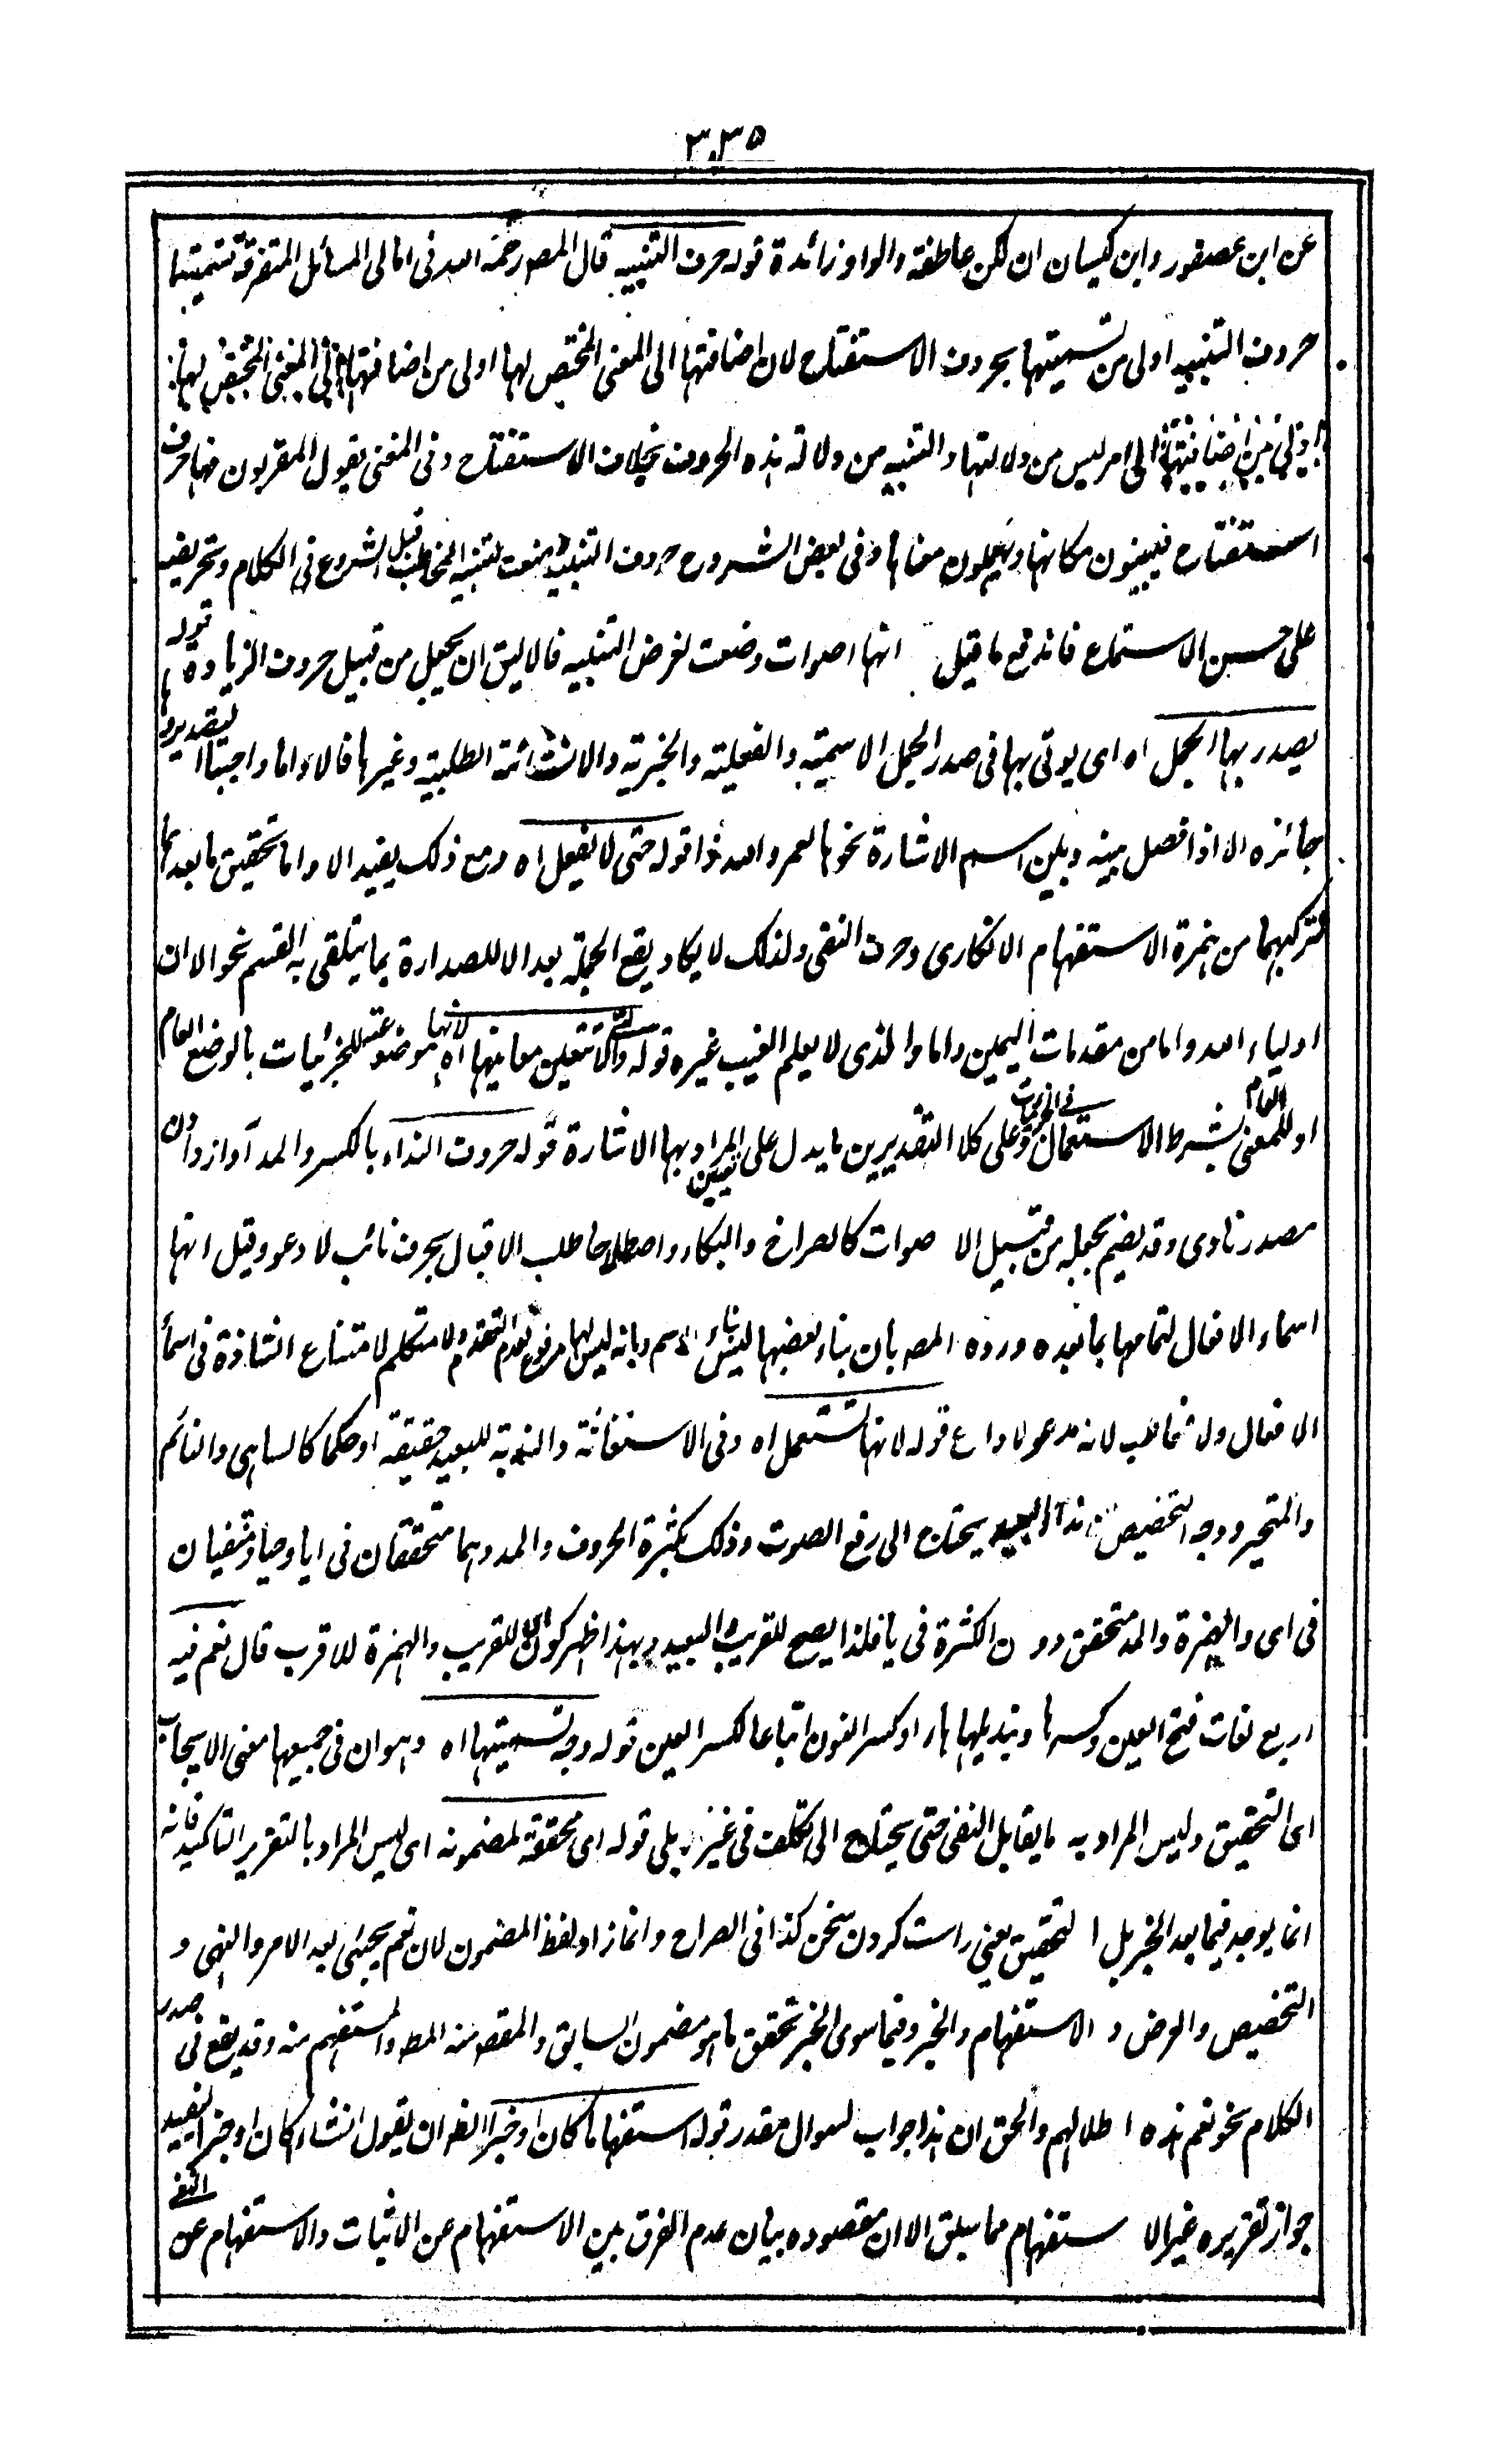 ٣٠٣٥
عن ابن عصفور وابن كيسان ان لكن عاطفة والواو زائدة قوله حرف التنبيه قال المصر رحمه الله فى امالى المسائل المتفرقة تسميتها
حروف التنبيه اولى من تسميتها بحروف الاستفتاح لان اضافتها الى المعنى المختص لها اولى من اضافتها
الى امر ليس من دلالتها والتنبيه من دلالة هذه الحروف بخلاف الاستفتاح وفى المغنى يقول المعربون فيها حرف
استفتاح فيبينون مكانها ويهملون معناها وفى بعض الشروح حروف التنبيه وضعت لتنبيه المخاطب قبل الشروع فى الكلام وتحريضه
على حسن الاستماع فاندفع ما قيل انها اصوات وضعت لغرض التنبيه فالاليق ان يجعل من قبيل حروف الزيادة قوله
يصدر بها الجمل اه اى يوتى بها فى صدر الجمل الاسمية والفعلية والخبرية والانشائية الطلبية وغيرها فالا واما واجبتا التصدير وها
جائزه الا اذا فصل بينه وبين اسم الاشارة نحو ها لعمرو الله ذا قوله حتى لا يغفل اه ومع ذلك يفيد الا واما تحقيق ما بعدها
لتركبهما من همزة الاستفهام الانكارى وحرف النفى ولذلك لا يكاد يقع الجملة بعد الا للصدارة بما يتلقى به القسم نحو الا ان
اولياء الله واما من مقدمات اليمين واما والذى لا يعلم الغيب غيره قوله معانيها اه لانها موضوعة للجزئيات بالوضع العام
او للمعنى العام بشرط الاستعمال فى الجزئيات وعلى كلا التقديرين ما يدل على تعيين المراد بها الاشارة قوله حروف النداء بالكسر والمد آواز دادن
مصدر نادى وقد يضم بجعله من قبيل الاصوات كالصراخ والبكاء واصطلاحا طلب الاقبال بحرف نائب لادعو وقيل انها
اسماء الافعال لتمامها بما بعده ورده المصر بان بناء بعضها ليس بناء الاسم وبانه ليس لها مرفوع لعدم التقدم ولا متكلم لامتناع الشاذة فى اسماء
الافعال ولا مخاطب لانه مدعو لا داع قوله لانها تستعمل اه وفى الاستغاثة والندبة للبعيد حقيقة او حكما كالساهى والنائم
والمتحير ووجه التخصيص ان نداء البعيد يحتاج الى رفع الصوت وذلك بكثرة الحروف والمد وهما متحققان فى ايا وهيا ومنفيان
فى اى والهمزة والمد متحقق دون الكثرة فى يا فلذا يصح للقريب والبعيد وبهذا ظهر كون اى للقريب والهمزة للاقرب قال نعم فيه
اربع لغات فتح العين وكسرها وتبديلها هاء او كسر النون اتباعا لكسر العين قوله وجه تسميتها اه وهو ان فى جميعها معنى الايجاب
اى التحقيق وليس المراد به ما يقابل النفى حتى يحتاج الى تكلف فى غير بلى قوله اى محققة لمضمونه اى ليس المراد بالتقرير التاكيد فانه
انما يوجد فيما بعد الخبر بل التحقيق يعنى راست كردن سخن كذا فى الصراح وانما زاد لفظ المضمون لان نعم يجيئ بعد الامر والنهى و
التخصيص والعرض والاستفهام والخبر وفيما سوى الخبر تحقق ما هو مضمون السابق والمقصر منه المطر والمستفهم منه وقد يقع فى صدر
الكلام نحو نعم هذه اطلالهم والحق ان هذا جواب لسوال مقدر قوله استفهاما كان او خبرا الظر ان يقول انشاء كان او خبرا ليفيد
جواز تقريره غير الاستفهام مما سبق الا ان مقصوده بيان عدم الفرق بين الاستفهام عن الاثبات والاستفهام عن النفى